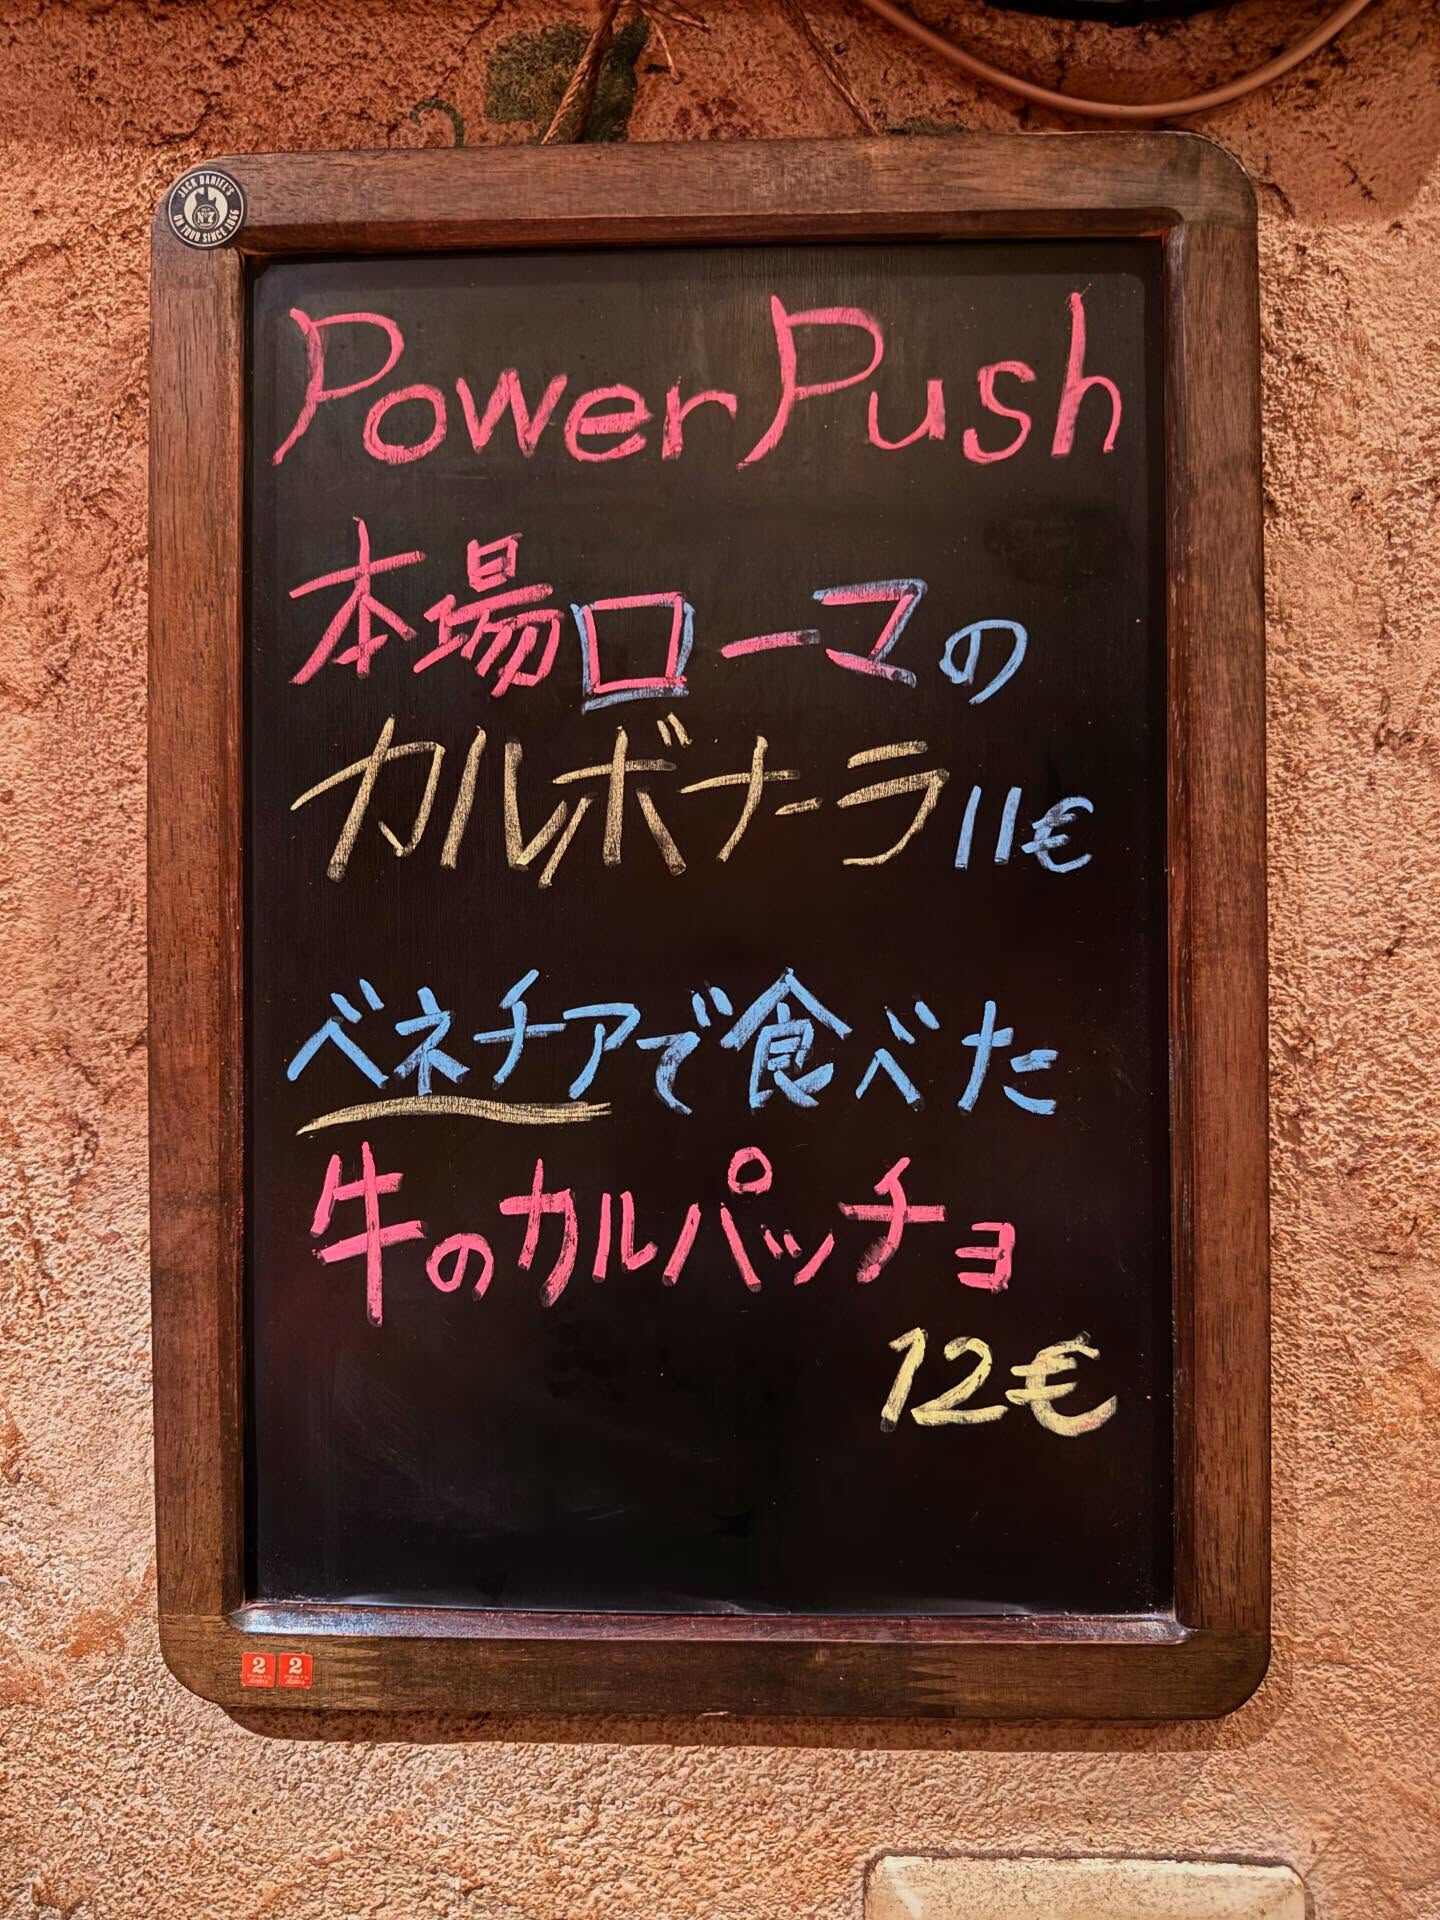 JACK DANIEL'S
OLD
Nº7
ON TOUR SINCE 1866
Power Push
本場ローマの
カルボナーラ 11€
ベネチアで食べた
牛のカルパッチョ
12€
2 2